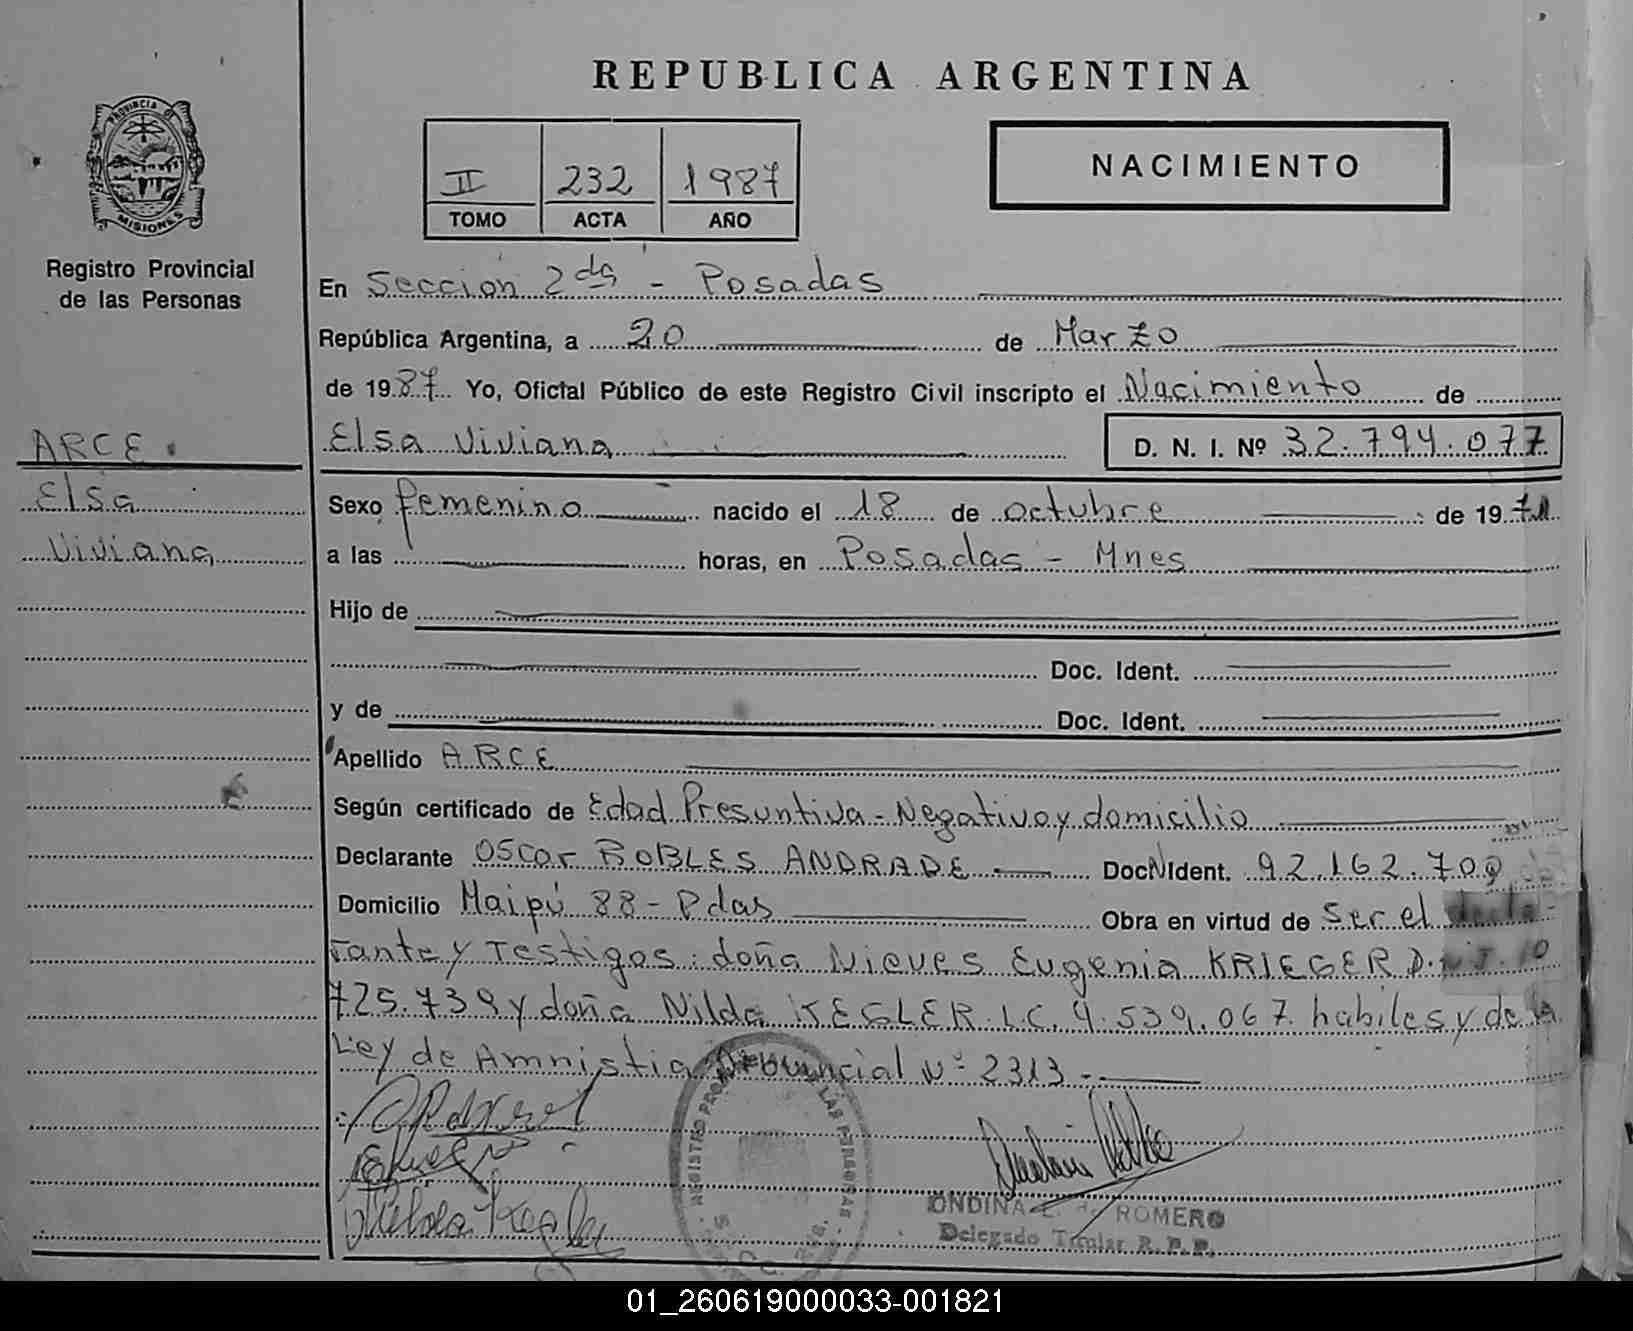 REPUBLICA ARGENTINA
PROVINCIA DE
MISIONES
Registro Provincial
de las Personas
II 232 1987
TOMO ACTA AÑO
NACIMIENTO
En Sección 2da - Posadas
República Argentina, a 20 de Marzo
de 1987. Yo, Oficial Público de este Registro Civil inscripto el Nacimiento de
Elsa Viviana D. N. I. Nº 32.794.077
ARCE
Elsa
Viviana
Sexo femenino nacido el 18 de octubre de 1971
a las horas, en Posadas - Mnes
Hijo de
Doc. Ident.
y de Doc. Ident.
Apellido ARCE
Según certificado de Edad Presuntiva - Negativo y domicilio
Declarante Oscar ROBLES ANDRADE Doc. Ident. 92.162.700
Domicilio Maipú 88 - Pdas Obra en virtud de ser el decla-
rante y Testigos: doña Nieves Eugenia KRIEGER D.N.I. 10
725.739 y doña Nilda KEGLER L.C. 4.539.067 habiles y de la
Ley de Amnistia Provincial Nº 2313 -
REGISTRO LAS PERSONAS
ONDINA ROMERO
Delegado Titular R. P. P.
01_260619000033-001821